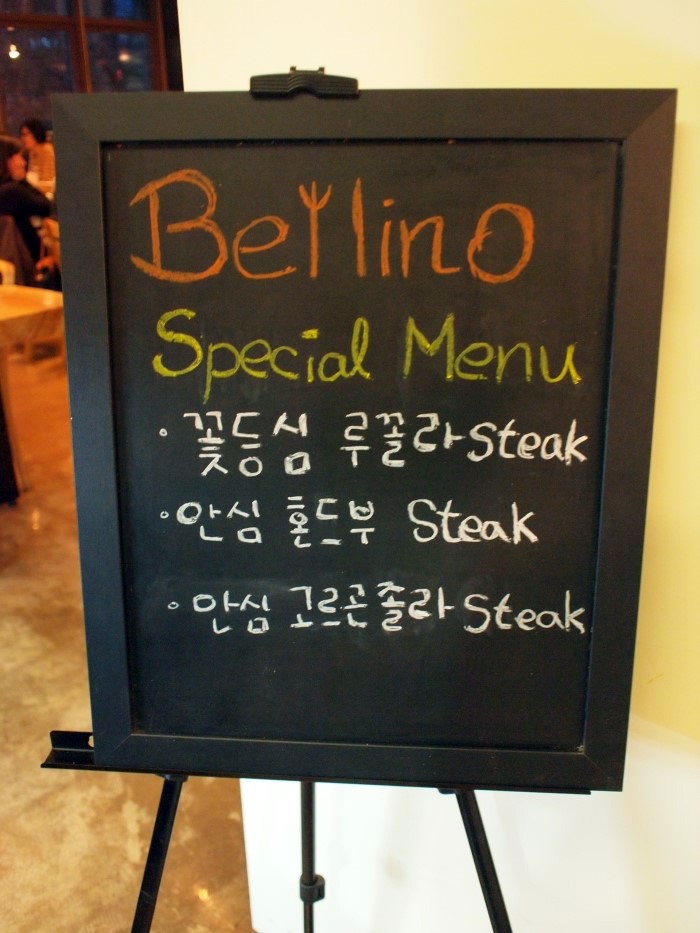 Bellino
Special Menu
◦ 꽃등심 루꼴라 Steak
◦ 안심 혼드부 Steak
◦ 안심 고르곤졸라 Steak